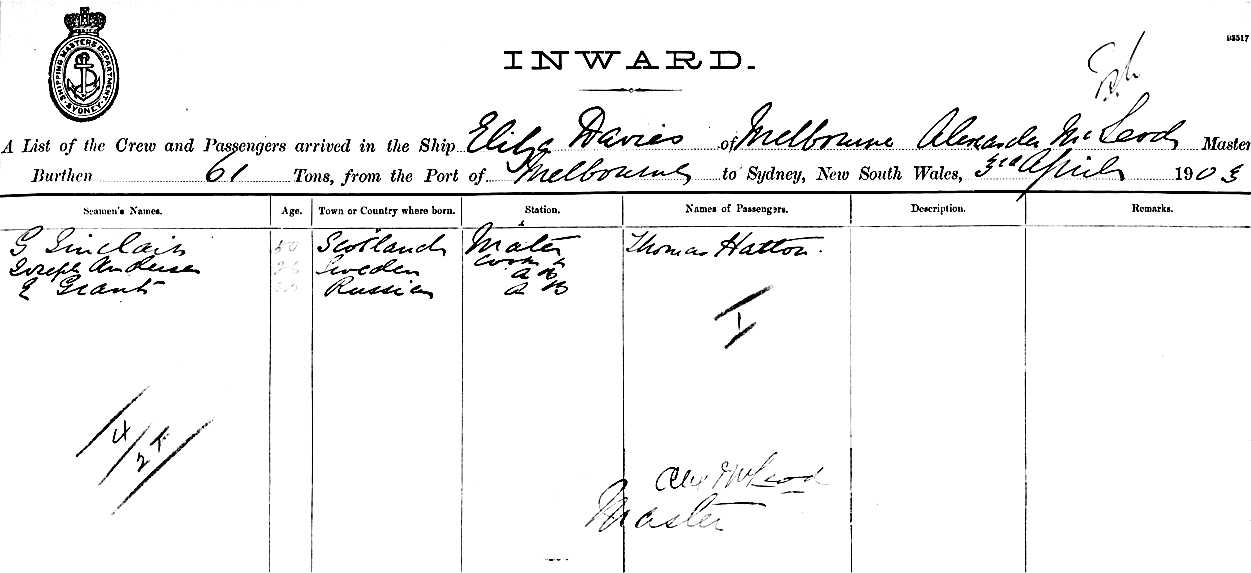 SHIPPING MASTERS DEPARTMENT SYDNEY
INWARD.
A List of the Crew and Passengers arrived in the Ship Eliza Davies of Melbourne Alexander McLeod Master
Burthen 61 Tons, from the Port of Melbourne to Sydney, New South Wales, 3rd April 1903
Seamen's Names. Age. Town or Country where born. Station. Names of Passengers. Description. Remarks.
G Sinclair 40 Scotland Mate Thomas Hatton.
Joseph Andersen 26 Sweden Cook &
A B
E Grant Russian A B
I
4
Alex McLeod
Master